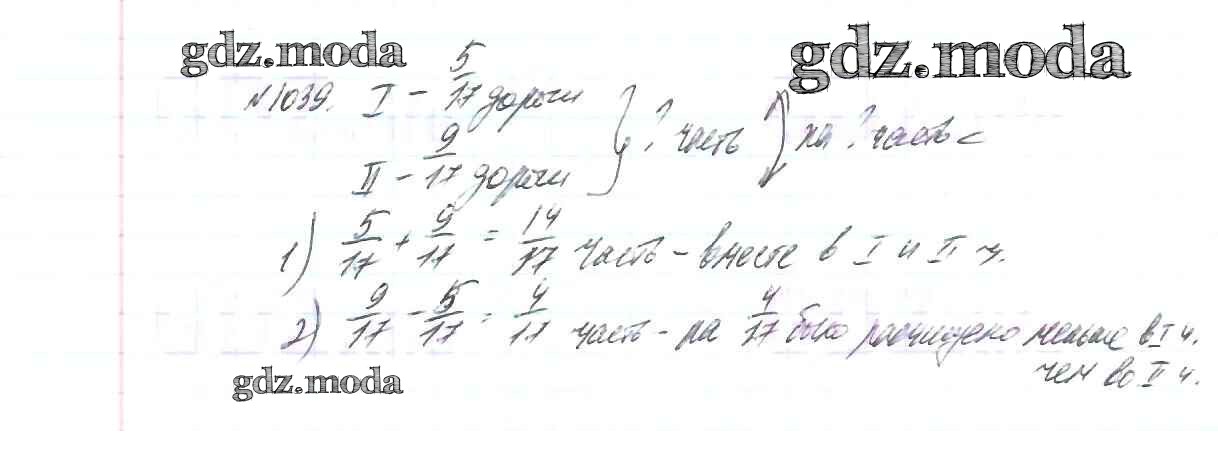 gdz.moda gdz.moda
№1039. I – 5/17 дороги
} ? часть ) на ? часть <
II – 9/17 дороги
1) 5/17 + 9/17 = 14/17 часть – вместе в I и II ч.
2) 9/17 – 5/17 = 4/17 часть – на 4/17 было расчищено меньше в I ч.
чем во II ч.
gdz.moda